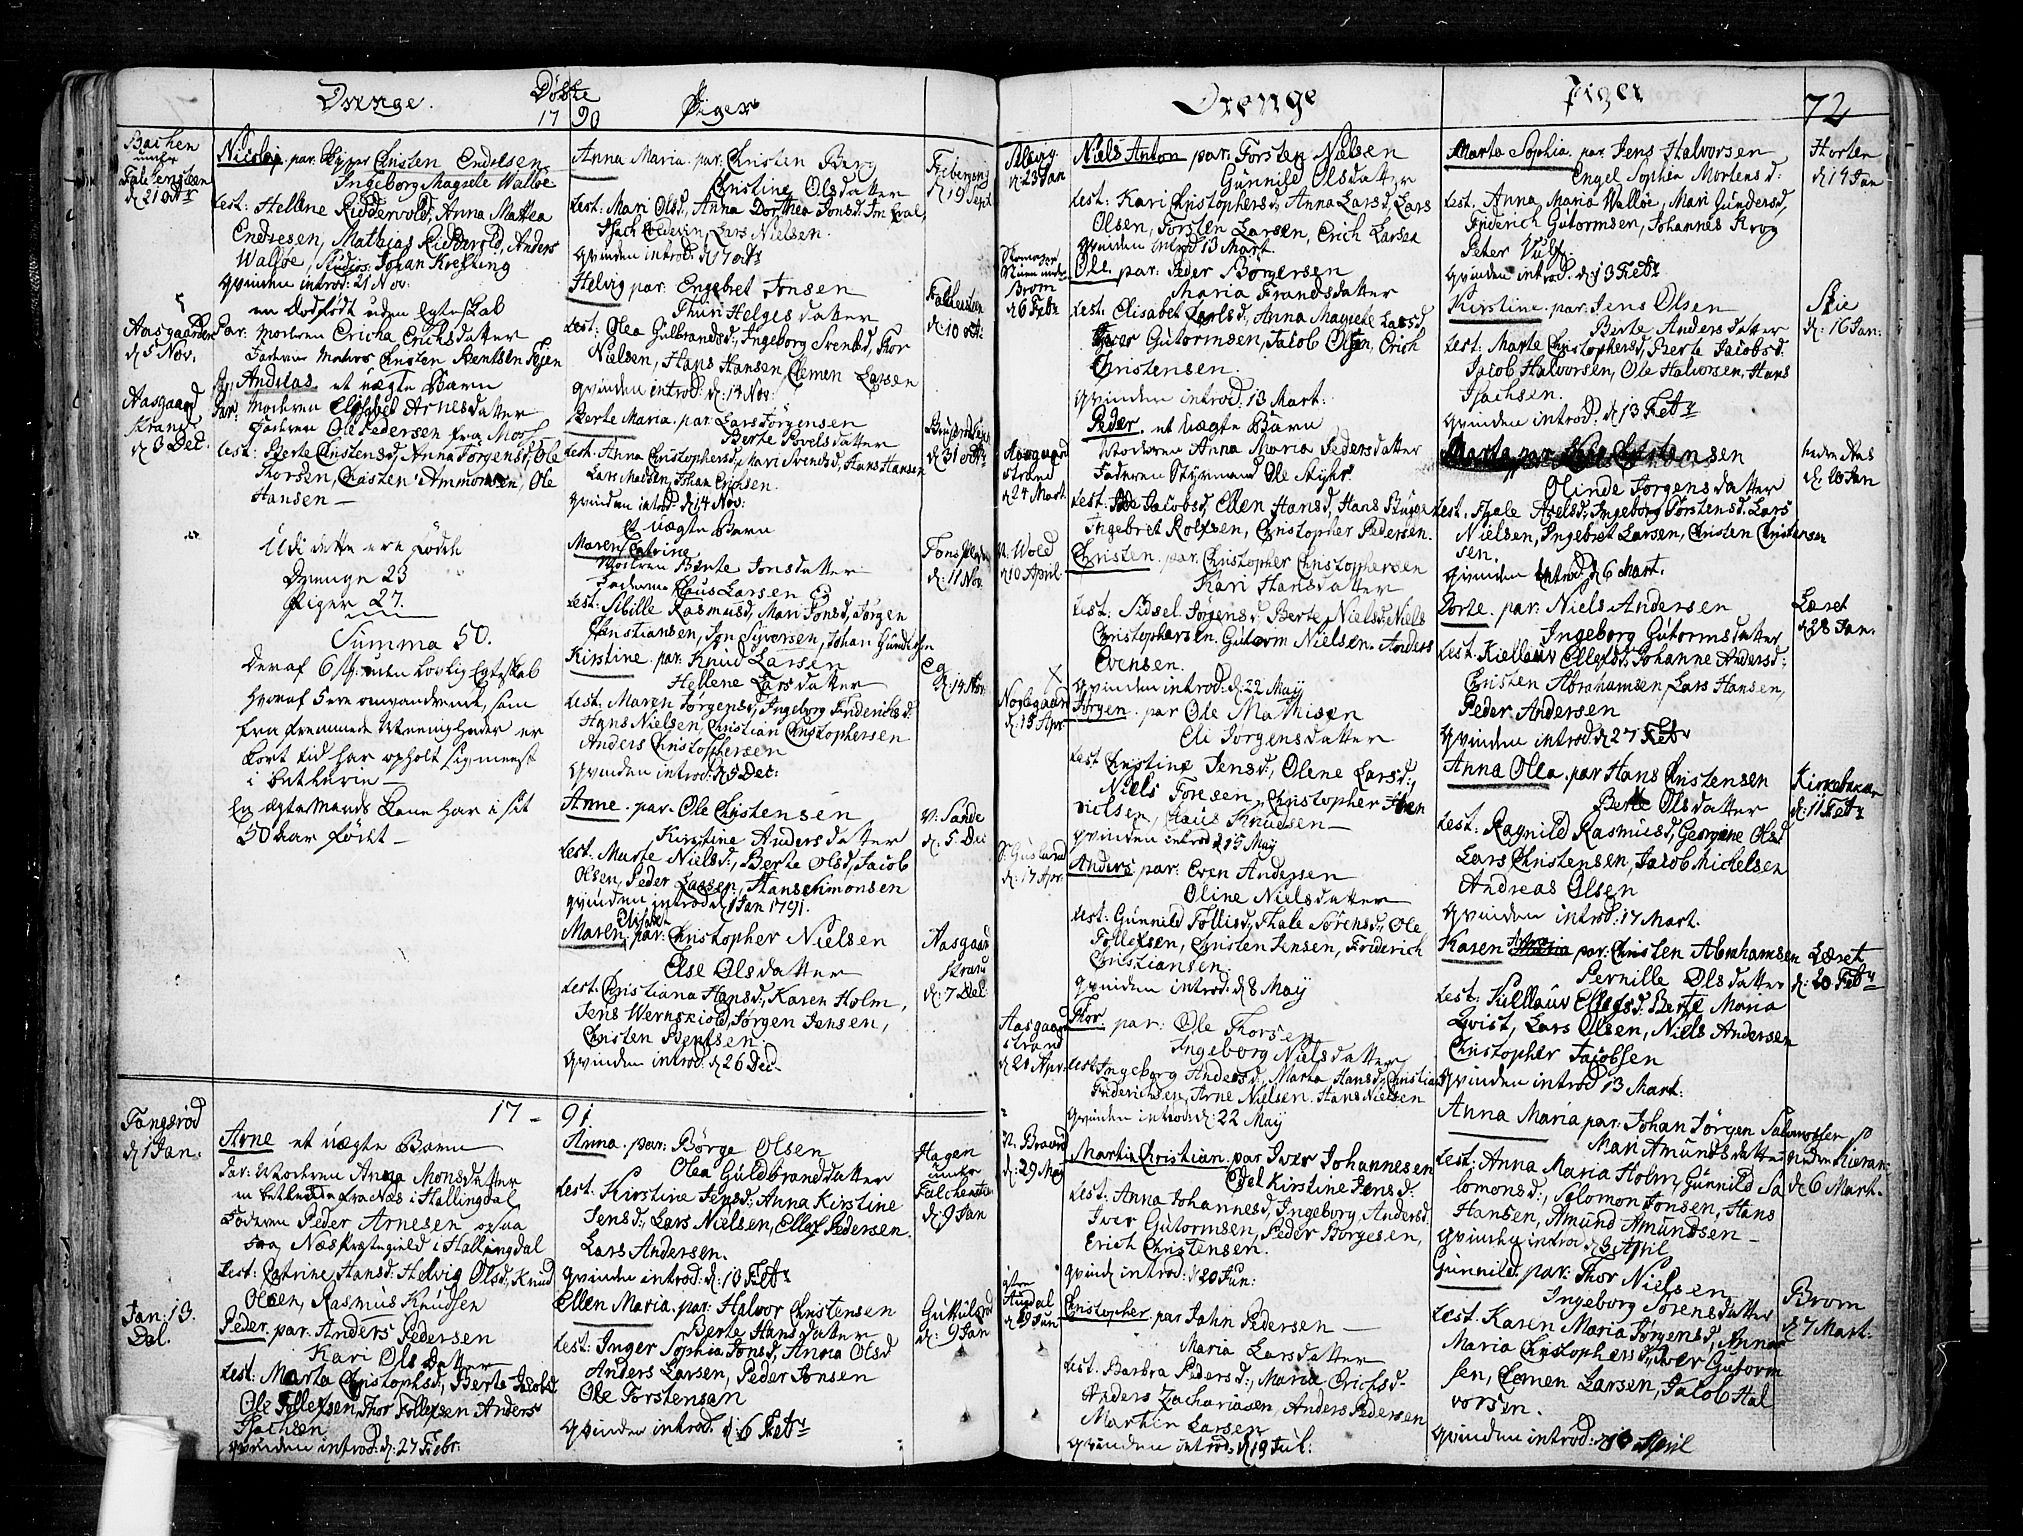 Døbte
Drenge. 17 90 Piger
Bachen
under
Falchensteen
d. 21 octr
Nicolaj. par. Christen Endresen
Ingeborg Magrete Walløe
test: Hellene Riddervold, Anna Mattea
Endresen, Mathias Riddervold, Anders
Walløe, Johan Krefting
qvinden introd: 21 Nov:
en Dødfødt uden Egteskab
Aasgaarden
d. 5 Nov.
Par: Moderen Ericha Erichsdatter
Faderen Matros Christen Berntsen
Aasgaard
strand
d. 3 Dec.
Andreas. et uægte Barn
Par: Moderen Elisabet Arnesdatter
Faderen Ole Pedersen fra Moss
test: Berte Christensd, Anna Jørgensd, Ole
Thorsen, Christen Ammonsen, Ole
Hansen
Udi dette ere fødde
Drenge 23
Piger 27.
Summa 50.
Deraf 6 st. uden Lovlig Egteskab
hvoraf 5 ere omvandrende, som
fra fremmede Menigheder en
kort tid har opholt sig meest
i betlerie
En ægte Mands Kone har i sit
50 aar født
Anna Maria. par: Christen Berg
Christine Olsdatter
test: Mari Olsd, Anna Dorthea Jonsd,
Isach Ledevin, Lars Nielsen.
qvinden introd: d. 17 octr
Friberg
d. 19 Sept
Helvig par: Engebret Jonsen
Thuri Helgesdatter
test: Olea Gulbrandsd, Ingeborg Svendsd, Thor
Nielsen, Hans Hansen, Clemen Larsen
qvinden introd: d: 14 Nov:
Falchensteen
d: 10 octr
Berte Maria. par: Lars Jørgensen
Berte Povelsdatter
test: Anna Christophersd, Mari Svendsd, Hans Hansen
Lars Madsen, Johan Erichsen.
qvinden introd: d 14 Nov:
d: 31 octr
et uægte Barn
Maren Catrine
Moderen Berte Jonsdatter
Faderen Claus Larsen Eg
test: Sibille Rasmusd, Mari Jonsd, Jørgen
Christiansen, Jon Siversen, Johan Gundersen
d: 11 Nov.
Kirstine. par: Knud Larsen
Hellene Larsdatter
test: Maren Jørgensd, Ingeborg Friderichsd.
Hans Nielsen, Christian Christophersen
Anders Christophersen
qvinden introd: d 5 Dec:
Eg
d: 14 Nov:
Anne. par: Ole Christensen
Kirstine Andersdatter
test: Marte Nielsd:, Berte Olsd, Jacob
Olsen, Peder Larsen, Hans Simonsen
qvinden introd d 1 Jan 1791.
v: Sande
d. 5 Dec
Maren Elisabet par: Christopher Nielsen
Else Olsdatter
test. Christiana Hansd., Karen Holm,
Jens Wernskiold, Jørgen Jensen,
Christen Bentsen.
qvinden introd: d 26 Dec
Aasgaard
strand
d: 7 Dec
17 - 91
Tangsrød
d. 1 Jan.
Arne et uægte Barn
Par: Moderen Anna Monsdatter
en betlerske fra Næs i Hallingdal
Faderen Peder Arnesen ogsaa
fra Næs Præstegield i Hallingdal
test: Catrine Hansd: Helvig Olsd, Knud
Olsen, Rasmus Knudsen
Jan. 13.
Dal.
Peder. par. Anders Pedersen
Kari Olsdatter
test: Marta Christophsd., Berte Jacobsd
Ole Tollefsen, Thor Tollefsen Anders
Isachsen
qvinden introd: d: 27 Febr:
Anna. par: Børge Olsen
Olea Guldbrandsdatter
test. Kirstine Jensd., Anna Kirstine
Jensd., Lars Nielsen, Ellef Pedersen
Lars Andersen.
qvinden introd: d: 10 Febr
Hagen
under
Falchensten
d: 9 Jan
Ellen Maria. par: Halvor Christensen
Berte Hansdatter
test: Inger Sophia Jonsd, Anna Olsd
Anders Larsen, Peder Jonsen
Ole Torstensen
qvinden introd. d: 6 Febr
d: 9 Jan
Drenge Piger 72
d. 23 Jan
Niels Anton par: Torsten Nielsen
Gunnild Olsdatter
test: Kari Christophersd, Anna Larsd, Lars
Olsen, Torsten Larsen, Erich Larsen
qvinden introd 13 Mart.
Brom
d 6 Febr
Ole. par: Peder Børgersen
Maria Frandsdatter
test: Elisabet Carlsd, Anna Magrete Larsd,
Iver Gutormsen, Jacob Olsen, Erich
Christensen.
qvinden introd: 13 Mart:
Aasgaard
strand
d 24 Mart
Peder. et uægte Barn
Moderen Anna Maria Pedersdatter
Faderen Styrmand Ole
test: Jacobsd, Ellen Hansd, Hans Bugge
Ingebret Rolfsen, Christopher Pedersen.
N. Wold
d 10 April
Christen. par. Christopher Christophersen
Kari Hansdatter
test: Sidsel Jørgensd, Berte Nielsd, Niels
Christophersen. Gutorm Nielsen. Anders
Evensen.
qvinden introd: d: 22 May
d. 15 Apr
Jørgen. par Ole Mathisen
Eli Jørgensdatter
test Christine Jensd., Olene Larsd.,
Niels Toresen, Christopher
nielsen, Claus Knudsen
qvinden introd d 15 May
d: 17 Apr
Anders. par: Even Andersen
Oline Nielsdatter
test: Gunnild Tollisd, Thale Sørensd., Ole
Tollefsen, Christen Jensen, Friderich
Christiansen.
qvinden introd: d 8 May
Aasgaard
strand
d 20 Apr.
Thor. par: Ole Thorsen
Ingeborg Nielsdatter
test Ingeborg Andersd, Marta Hansd, Christian
Friderichsen, Arne Nielsen. Hans Nielsen
qvinden introd d: 22 May
d: 29 May
Martin Christian. par Iver Johannesen
Edel Kirstine Jensd:
test: Anna Johannesd, Ingeborg Andersd.
Iver Gutormsen, Peder Børgesen,
Erich Christensen.
qvind introd: d 20 Jun:
d 19 Jun
Christopher. par John Pedersen
Maria Larsdatter
test. Barbra Pedersd:, Maria Erichsd-
Anders Zachariasen, Anders Pedersen
Martin Larsen
qvinden introd: d 19 Jul:
Marta Sophia. par. Jens Halvorsen
Engel Sophia Mortensd:
test. Anna Maria Walløe, Mari Gundersd,
Friderich Gutormsen, Johannes Krog
Peter Vulf.
qvinden introd: d: 13 Febr
Horten
d 14 Jan
Kirstine. par Jens Olsen
Berte Andersdatter
test: Marte Christophersd, Berte Jacobsd.
Jacob Halvorsen, Ole Halvorsen, Hans
Isachsen.
qvinden introd. d 13 Febr
Skie
d: 16 Jan:
Marta par Christensen
Olinde Jørgensdatter
test. Thale Axelsd, Ingeborg Torstensd. Lars
Nielsen, Ingebret Larsen, Christen Christensen
qvinden introd d 6 Mart.
nedre Aas
d: 20 Jan
Dorte. par: Niels Andersen
Ingeborg Gutormsdatter
test. Kiellauv Ellefsd, Johanne Andersd:
Christen Abrahamsen, Lars Hansen,
Peder Andersen
qvinden introd d 27 Febr
Læret
d 28 Jan.
Anna Olea. par Hans Christensen
Berte Olsdatter
test. Ragnild Rasmusd, Georgine Olsd
Lars Christensen, Jacob Michelsen
Andreas Olsen
qvinden introd. 17 Mart.
Kirkebakken
d: 11 Febr
Karen par: Christen Abrahamsen
Pernille Olsdatter
test. Kiellauv Ellefsd: Berte Maria
Qvist, Lars Olsen, Niels Andersen
Christopher Jacobsen
qvinden introd 13 Mart:
Læret
d: 20 Febr
Anna Maria par: Johan Jørgen Salomonsen
Mari Amundsdatter
test: Anna Maria Holm, Gunnild Sa
lomonsd., Salomon Jonsen, Hans
Hansen, Amund Amundsen
qvinden introd d 3 April
d 6 Mart.
Gunnild. par: Thor Nielsen
Ingeborg Sørensdatter
test. Karen Maria Jørgensd, Anna
Maria Christophersd, Iver Gutorm
sen, Clemen Larsen, Jacob Hal
vorsen.
qvinden introd: d 10 April
Brom
d 7 Mart.